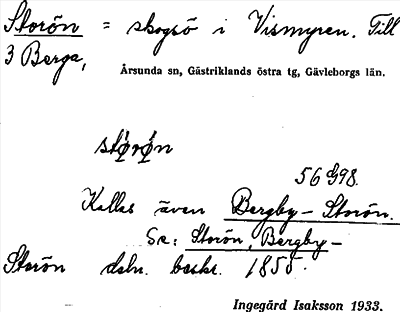 Storön = skogsö i Vismyren. Till
3 Berga,
Årsunda sn, Gästriklands östra tg, Gävleborgs län.
störön
56 G98.
Kallas även Bergby-Storön.
Se: Storön, Bergby-
Storön dsln. beskr. 1855.
Ingegärd Isaksson 1933.